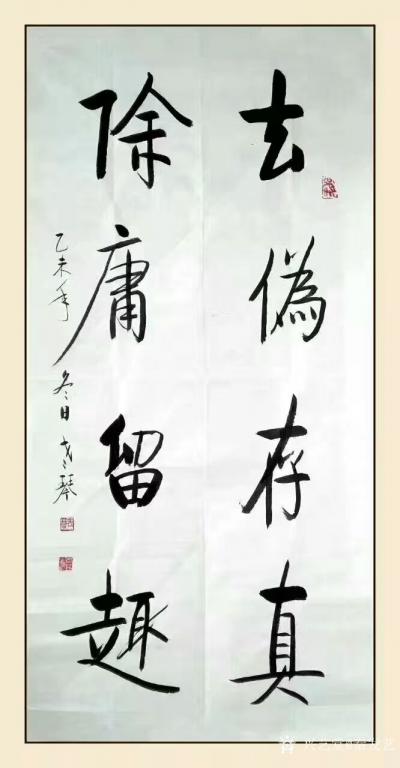 去偽存真
除庸留趣
乙未年冬日
琴